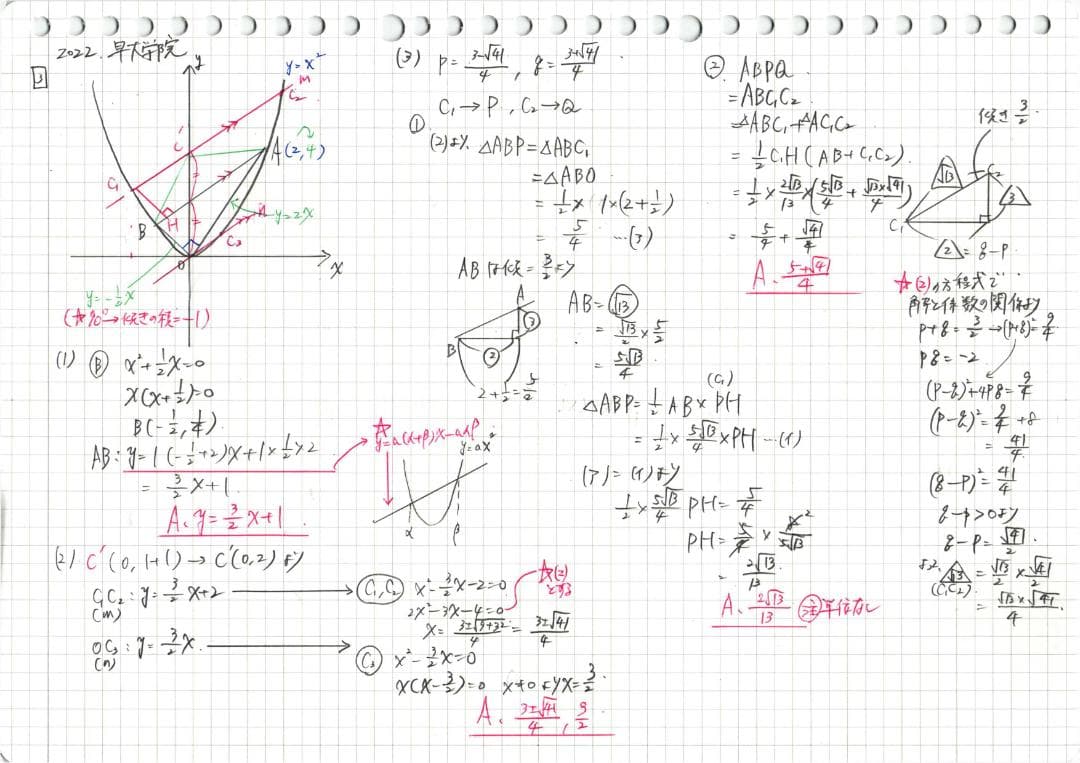 2022. 早大学院
3
y
y=x²
m
C₂
C'
A(2,4)
C₁
H
B
n
C₃
y=2x
O
x
y=-½x
(☆90°→傾きの積=-1)
(1) Ⓑ x²+½x=0
x(x+½)=0
B(-½, ¼)
AB: y=1(-½+2)x+1×½×2
=3/2x+1
A、y=3/2x+1
☆
y=a(α+β)x-aαβ
y=ax²
α β
(2) C'(0,1+1)→C'(0,2)より
C₁C₂: y=3/2x+2
(m)
OC₃: y=3/2x
(n)
C₁,C₂ x²-3/2x-2=0
2x²-3x-4=0
x=3±√9+32/4=3±√41/4
C₃ x²-3/2x=0
x(x-3/2)=0 x≠0よりx=3/2
A、3±√41/4, 3/2
(3) p=3-√41/4, q=3+√41/4
C₁→P, C₂→Q
①
(2)より、△ABP=△ABC₁
=△ABO
=½×1×(2+½)
=5/4 …(ア)
ABは傾=3/2より
A
③
B
②
2+½=5/2
AB=√13
=√13/2×5/2
=5√13/4
(C₁)
△ABP=½AB×PH
=½×5√13/4×PH…(イ)
(ア)=(イ)より
½×5√13/4PH=5/4
PH=5/4×8²/5√13
=2√13/13
A、2√13/13 注単位なし
② ABPQ
=ABC₁C₂
=△ABC₁+△AC₁C₂
=½C₁H(AB+C₁C₂)
=½×2√13/13×(5√13/4+√13×√41/4)
=5/4+√41/4
A、5+√41/4
傾き3/2
√13
C₂
3
C₁
2=q-p
☆(2)の方程式で
解と係数の関係より
p+q=3/2→(p+q)²=9/4
pq=-2
(p-q)²+4pq=9/4
(p-q)²=9/4+8
=41/4
(q-p)²=41/4
q-p>0より
q-p=√41/2
よって、√13=√13/2×√41/2
(C₁C₂)
=√13×√41/4